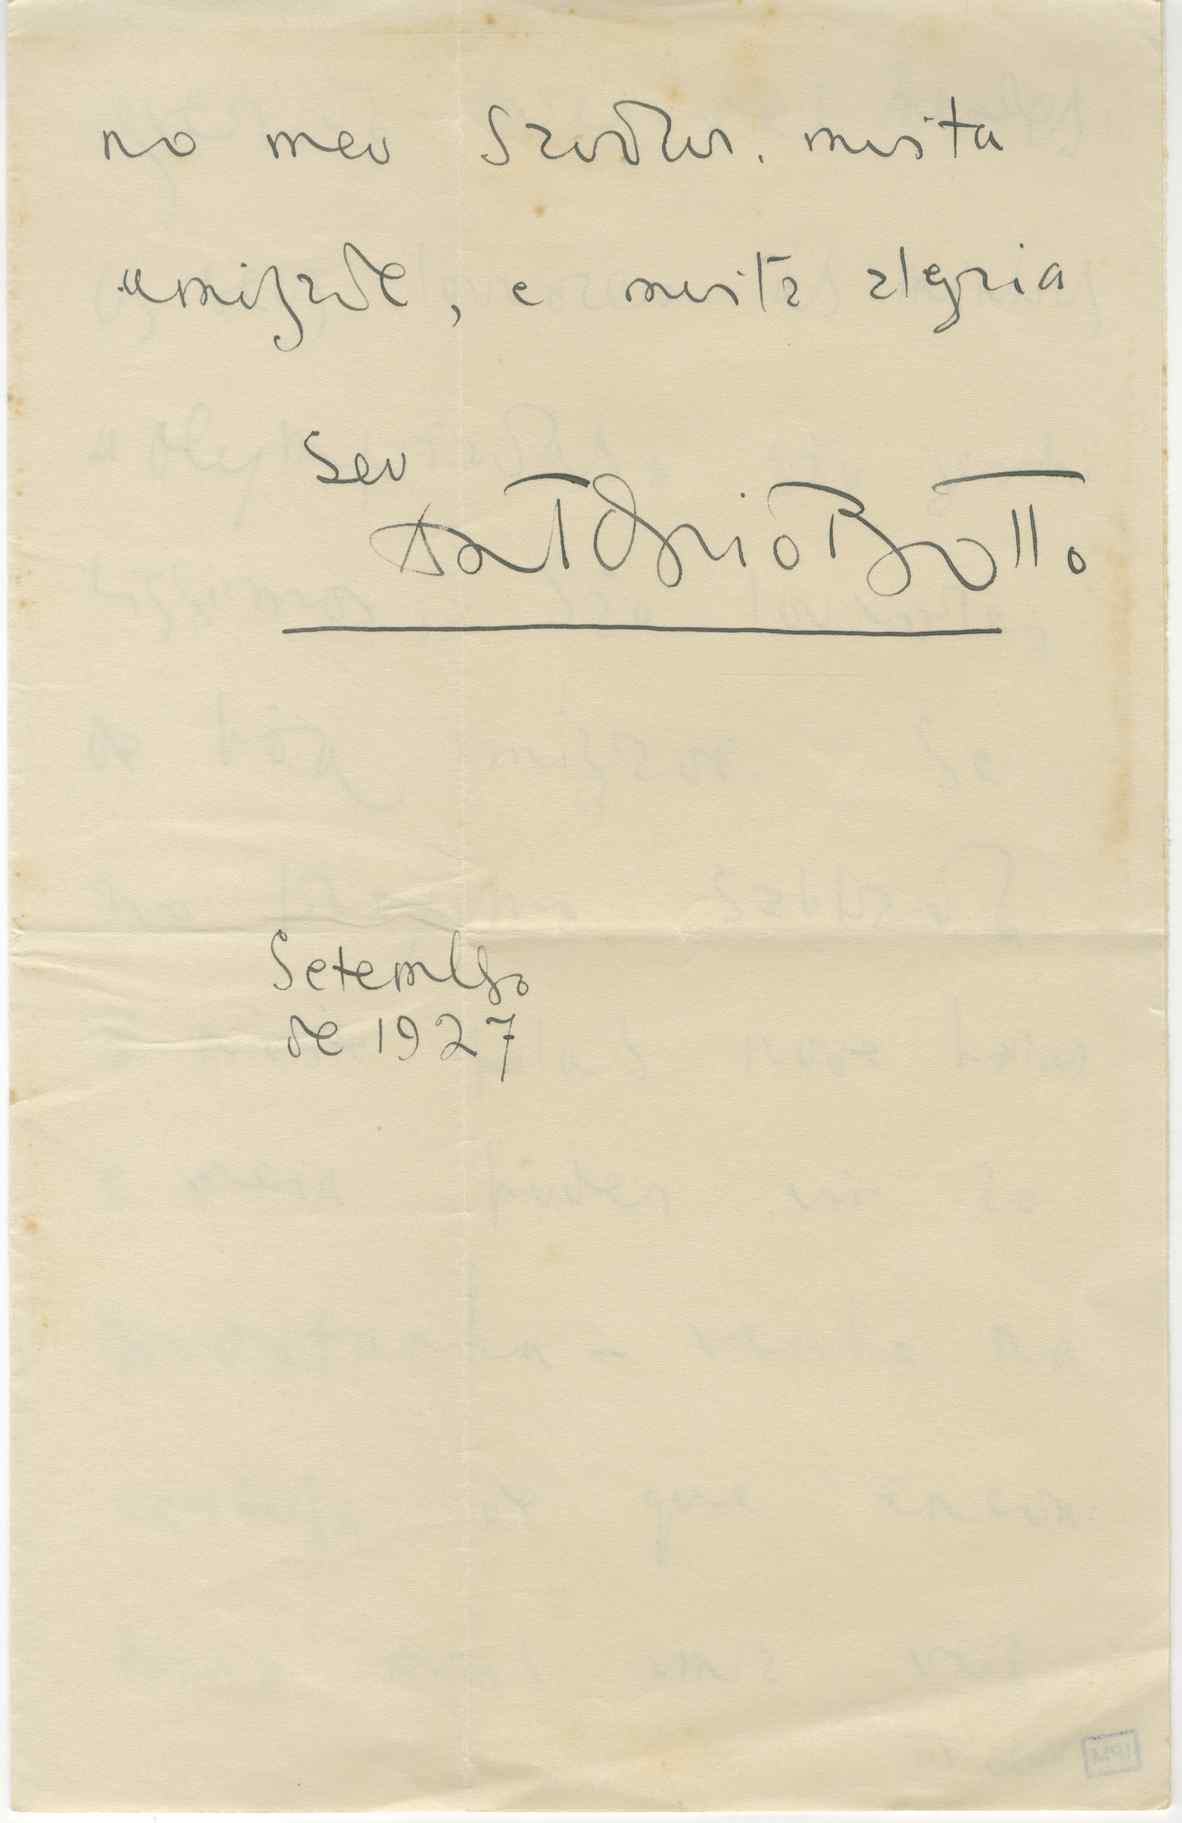 no meu Saudar. muita
amizade, e muita alegria
Seu
Antonio Botto
Setembro
de 1927